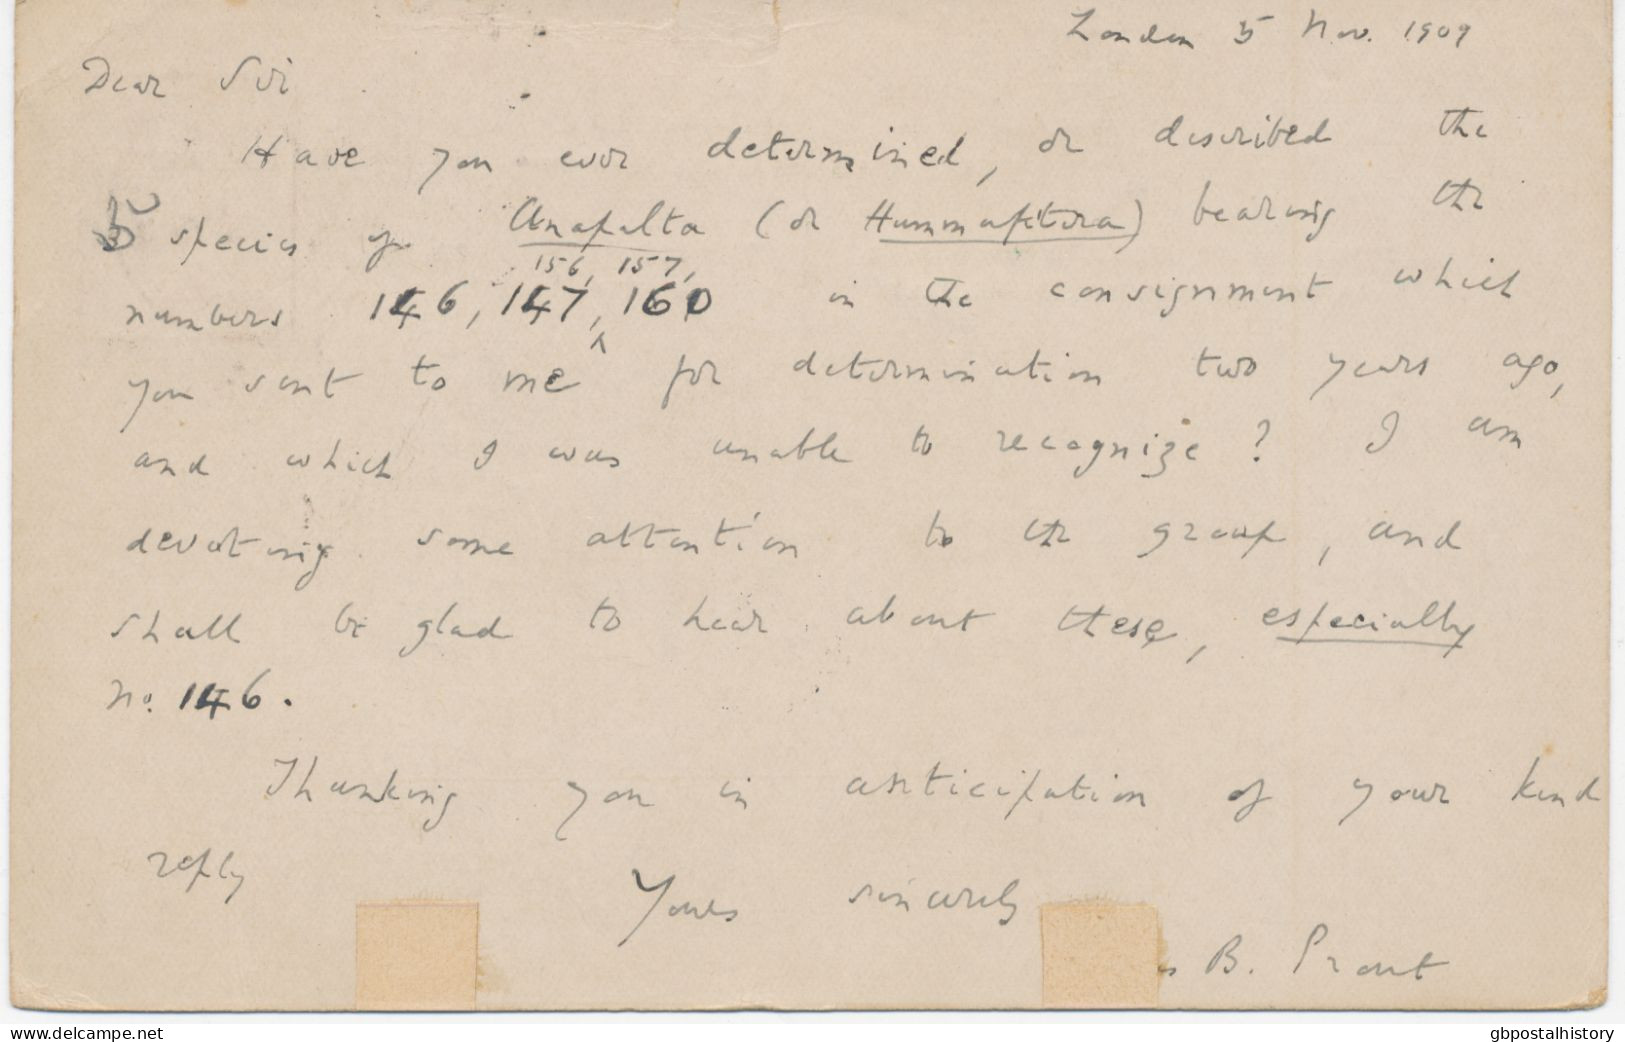 London 5 Nov. 1909
Dear Sir
Have you ever determined, or described the
5 species of Anapalta (or Hammaptera) bearing the
156, 157,
numbers 146, 147, 160 in the consignment which
you sent to me for determination two years ago,
and which I was unable to recognize? I am
devoting some attention to the group, and
shall be glad to hear about these, especially
no. 146.
Thanking you in anticipation of your kind
reply
Yours sincerely
B. Prout
www.delcampe.net
gbpostalhistory